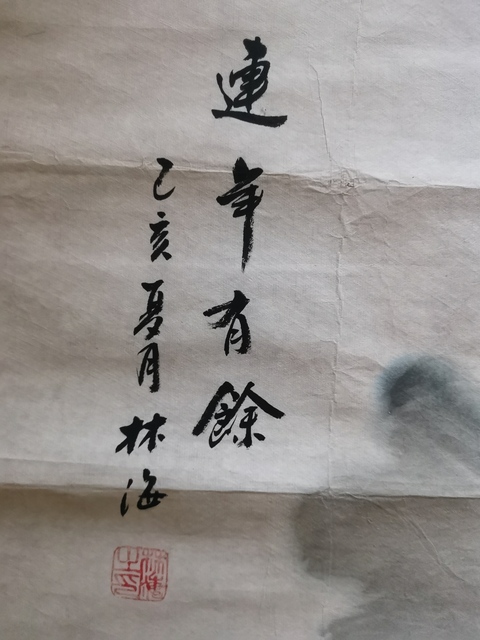 連年有餘
己亥夏月林海